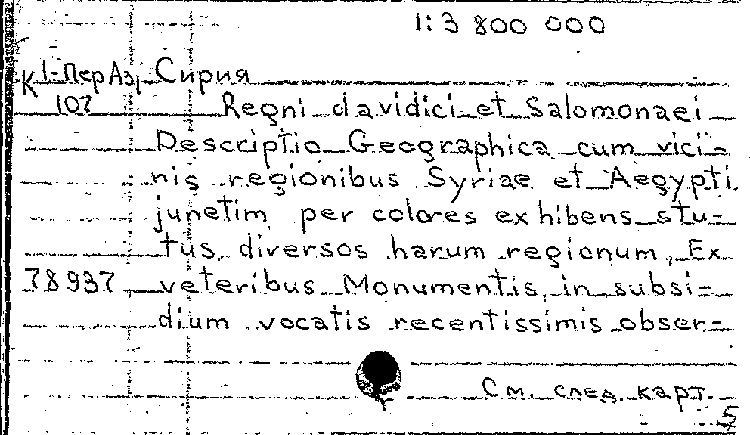 1:3 800 000
К 1-Пер Аз Сирия
107 Regni davidici et Salomonaei
Descriptio Geographica cum vici-
nis regionibus Syriae et Aegypti
junetim per colores exhibens stu-
tus diversos harum regionum, Ex
78937 veteribus Monumentis in subsi-
dium vocatis recentissimis obser-
См. след. карт.